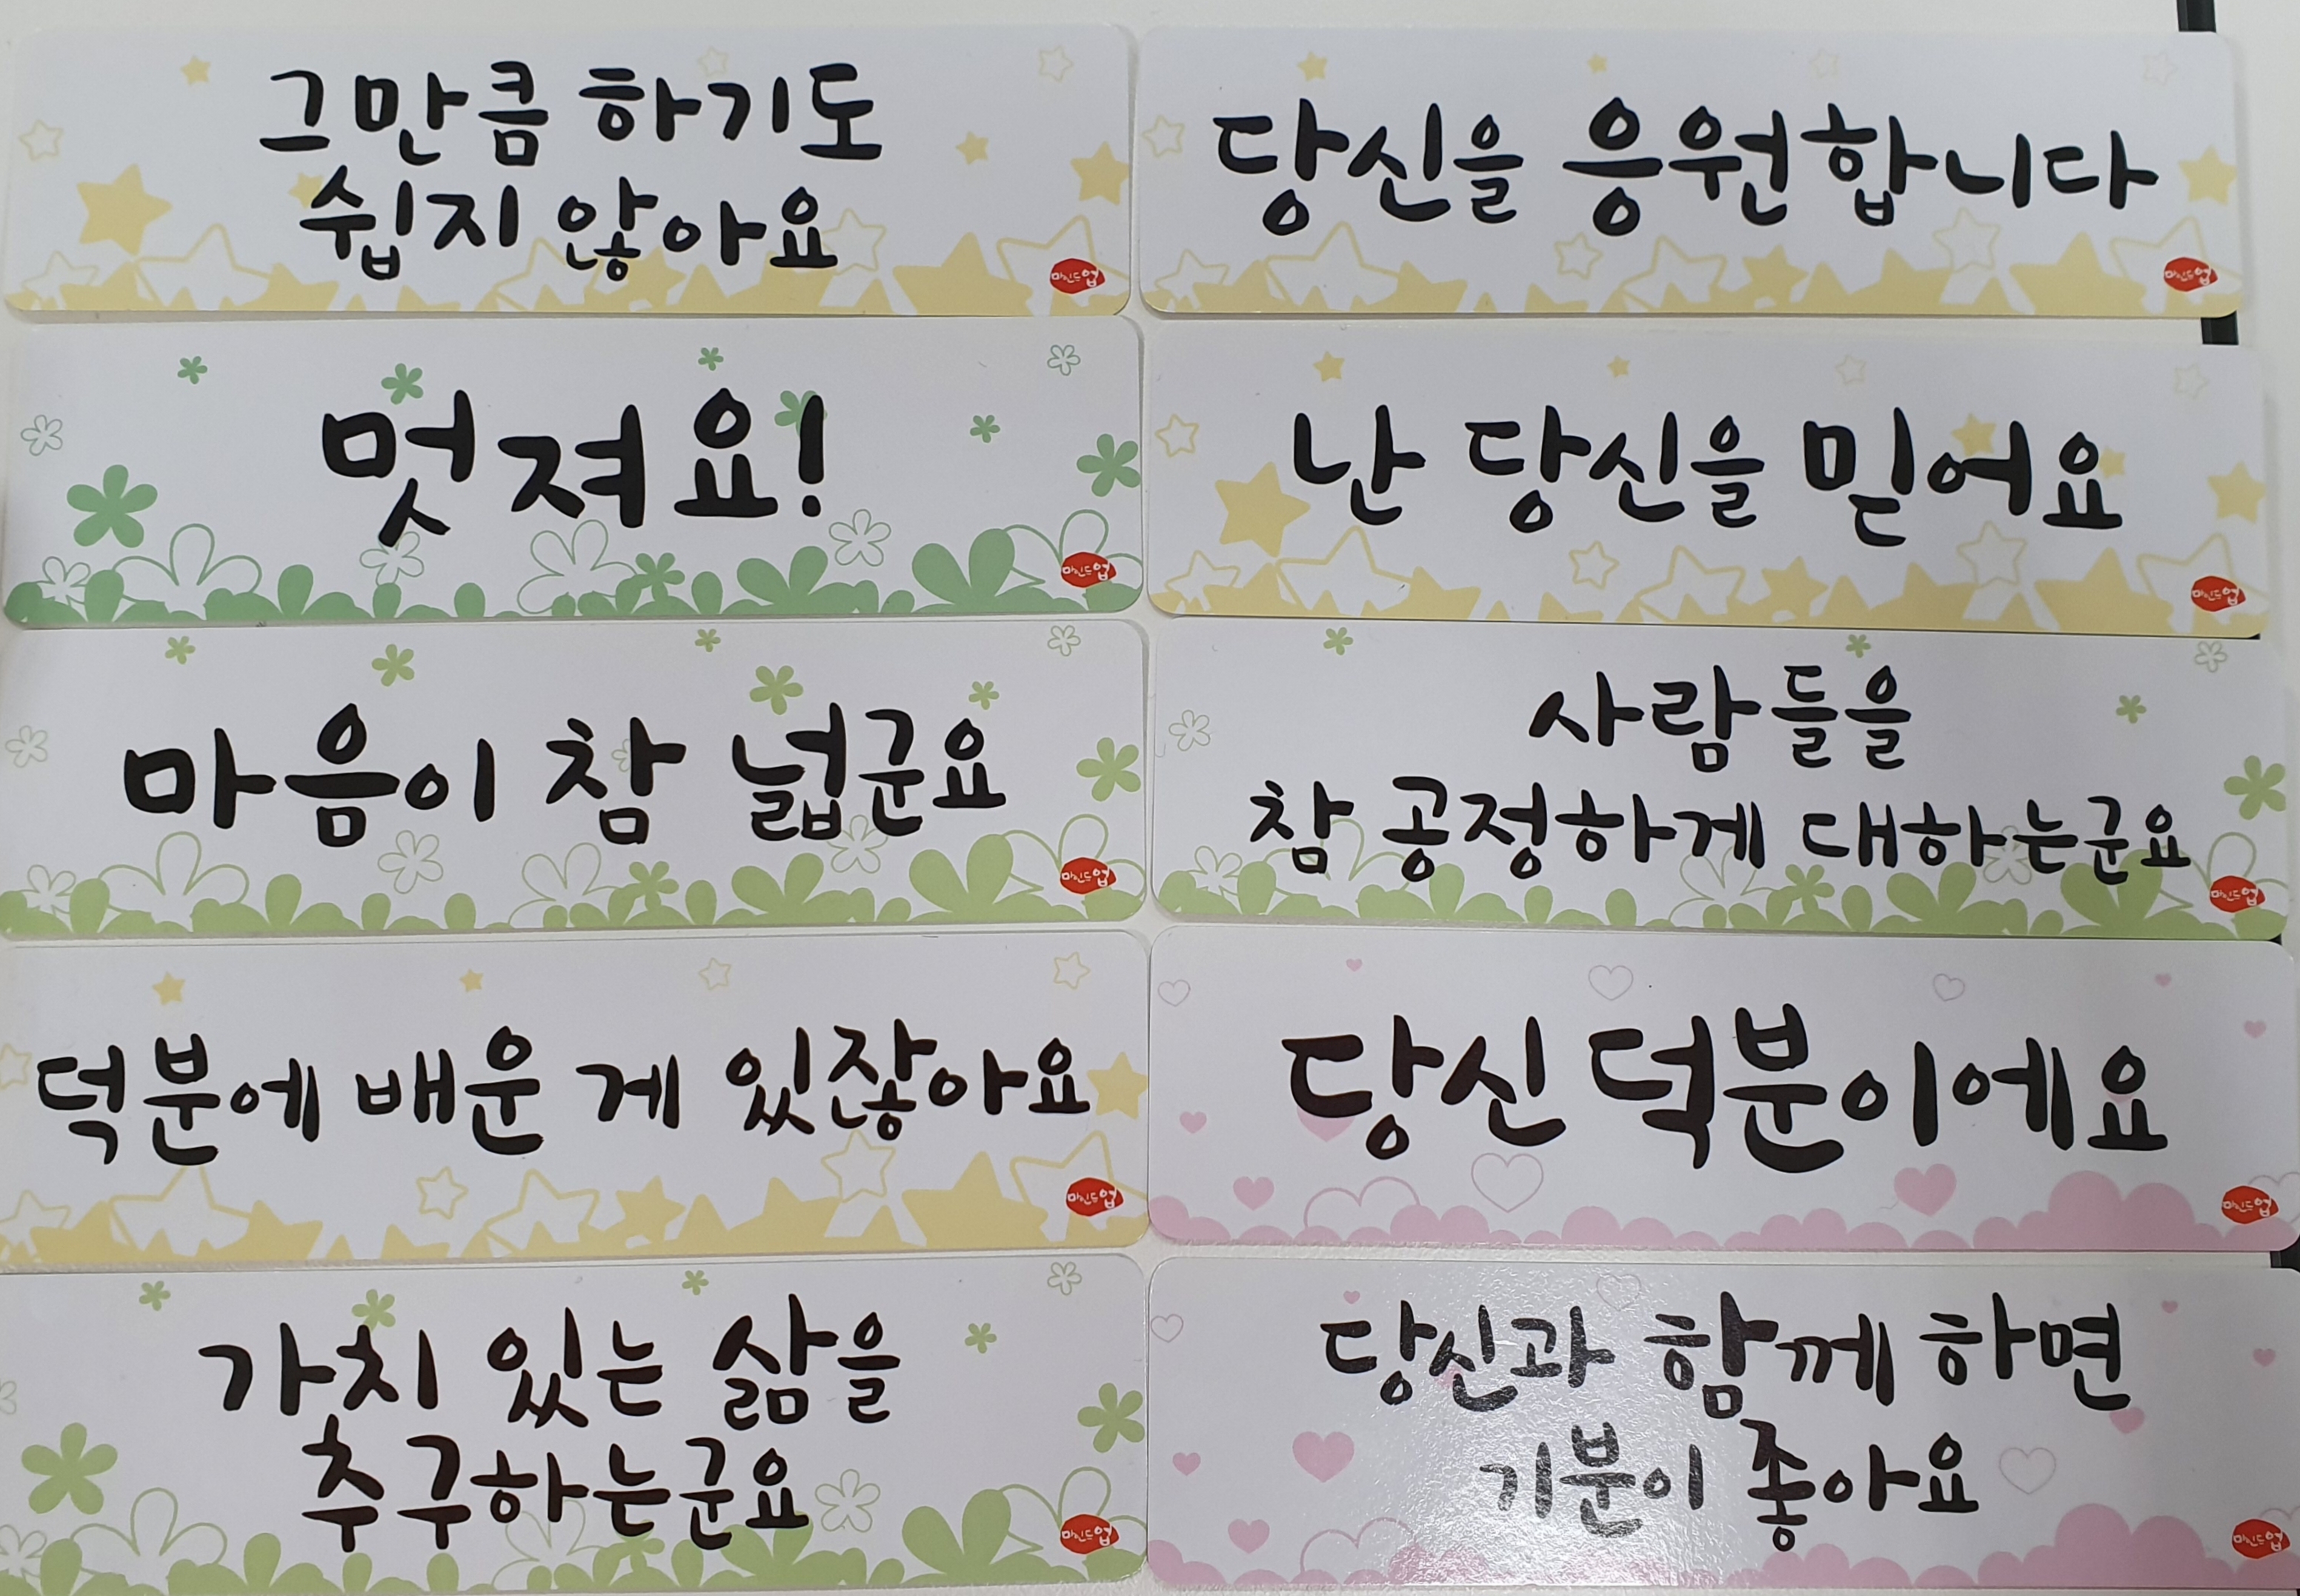 그만큼 하기도
쉽지 않아요
마인드업
당신을 응원합니다
마인드업
멋져요!
마인드업
난 당신을 믿어요
마인드업
마음이 참 넓군요
마인드업
사람들을
참 공정하게 대하는군요
마인드업
덕분에 배운 게 있잖아요
마인드업
당신 덕분이에요
마인드업
가치 있는 삶을
추구하는군요
마인드업
당신과 함께 하면
기분이 좋아요
마인드업